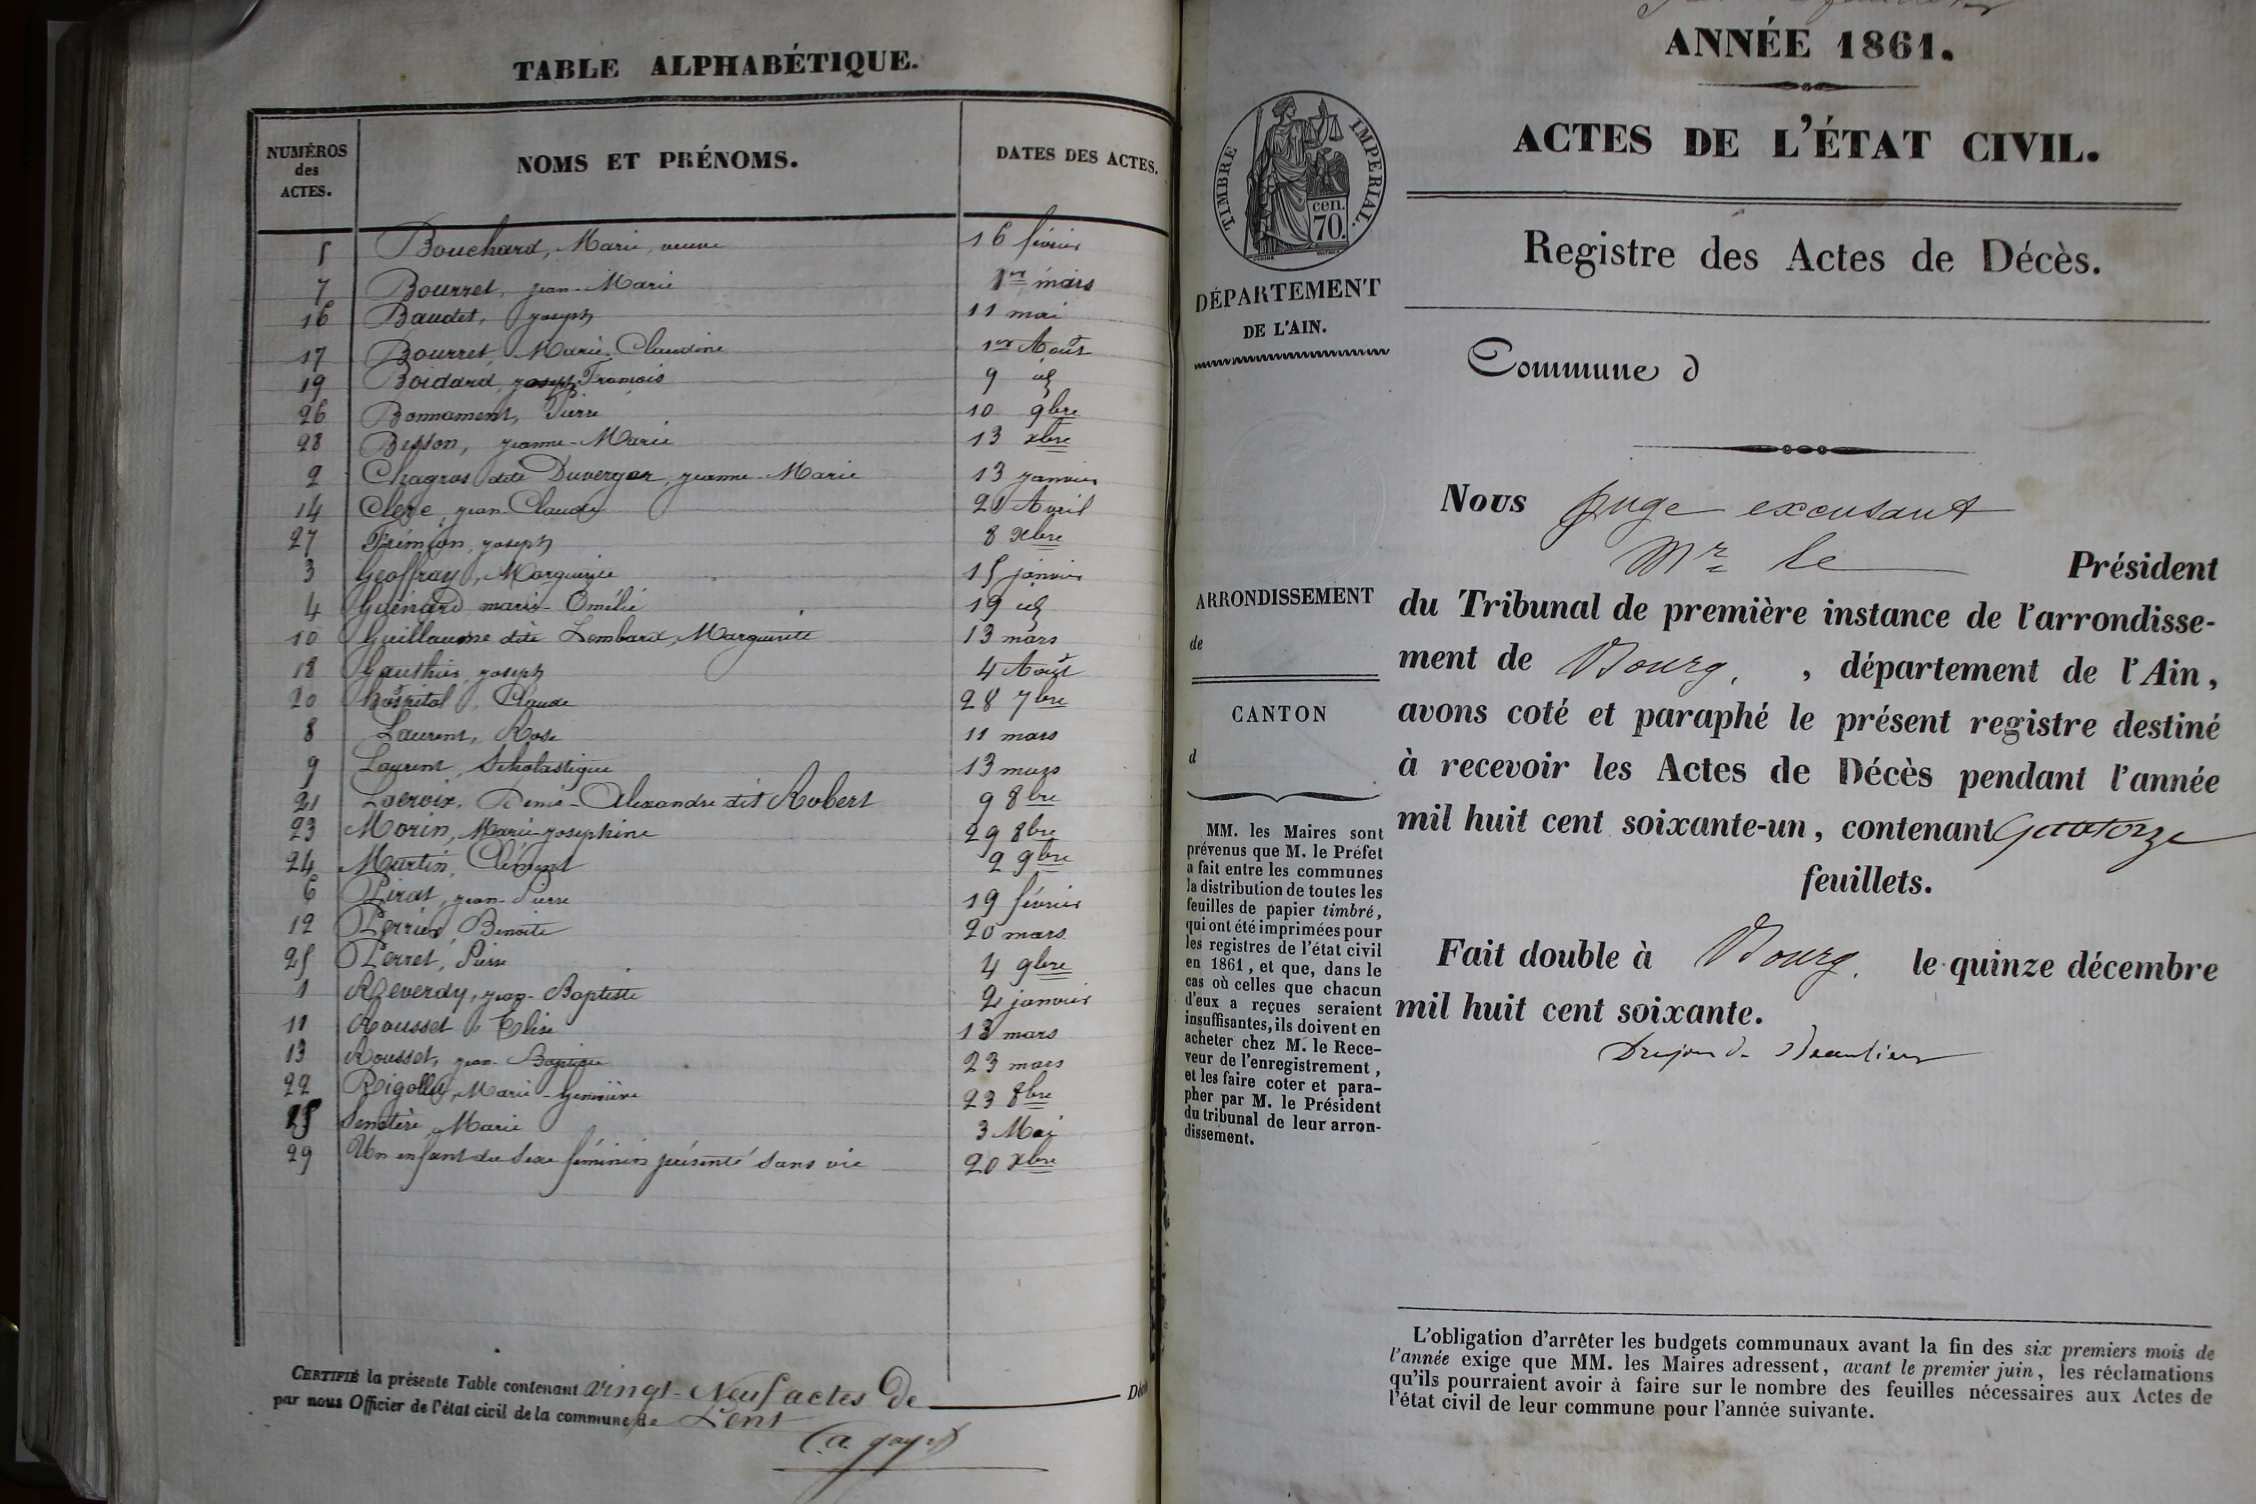 TABLE ALPHABÉTIQUE.
NUMÉROS
des
ACTES.
NOMS ET PRÉNOMS.
DATES DES ACTES.
5 Bouchard, Marie, veuve 16 février
7 Bourret, jean-Marie 1er mars
16 Baudet, joseph 11 mai
17 Bourret, Marie-Claudine 1er Août
19 Boidard, joseph François 9 id
26 Bonnament, Pierre 10 9bre
28 Besson, jeanne-Marie 13 xbre
2 Chagros dite Duverger, jeanne-Marie 13 janvier
14 Clere, jean-Claude 21 Avril
27 Frémion, joseph 8 xbre
3 Geoffray, Marguerite 15 janvier
4 Guénard marie-Omélie 19 id
10 Guillaume dite Lombard, Marguerite 13 mars
18 Gauthier, joseph 4 Août
20 hôspital, Claude 28 7bre
8 Laurent, Rose 11 mars
9 Laurent, Scholastique 13 mars
21 Lacroix, Denis-Alexandre dit Robert 9 8bre
23 Morin, Marie-josephine 29 8bre
24 Martin, Clément 2 9bre
6 Pirat, jean-Pierre 19 février
12 Perrier, Benoite 20 mars
25 Perret, Pierre 4 9bre
1 Reverdy, jean-Baptiste 2 janvier
11 Rousset Elise 13 mars
13 Rousset, jean-Baptiste 23 mars
22 Rigollet, Marie-Geneviève 23 8bre
15 Senetère Marie 3 Mai
29 Un enfant du Sexe féminin présenté Sans vie 20 xbre
CERTIFIÉ la présente Table contenant vingt-Neuf actes De
par nous Officier de l'état civil de la commune de Lent
ANNÉE 1861.
ACTES DE L'ÉTAT CIVIL.
TIMBRE IMPÉRIAL.
cen.
70.
DÉPARTEMENT
DE L'AIN.
Registre des Actes de Décès.
Commune d
Nous juge excusant
Mr le Président
du Tribunal de première instance de l'arrondisse-
ment de Bourg, , département de l'Ain,
avons coté et paraphé le présent registre destiné
à recevoir les Actes de Décès pendant l'année
mil huit cent soixante-un, contenant Quatorze
feuillets.
Fait double à Bourg, le quinze décembre
mil huit cent soixante.
Drujon de Beaulieu
ARRONDISSEMENT
de
CANTON
d
MM. les Maires sont
prévenus que M. le Préfet
a fait entre les communes
la distribution de toutes les
feuilles de papier timbré,
qui ont été imprimées pour
les registres de l'état civil
en 1861, et que, dans le
cas où celles que chacun
d'eux a reçues seraient
insuffisantes, ils doivent en
acheter chez M. le Rece-
veur de l'enregistrement,
et les faire coter et para-
pher par M. le Président
du tribunal de leur arron-
dissement.
L'obligation d'arrêter les budgets communaux avant la fin des six premiers mois de
l'année exige que MM. les Maires adressent, avant le premier juin, les réclamations
qu'ils pourraient avoir à faire sur le nombre des feuilles nécessaires aux Actes de
l'état civil de leur commune pour l'année suivante.